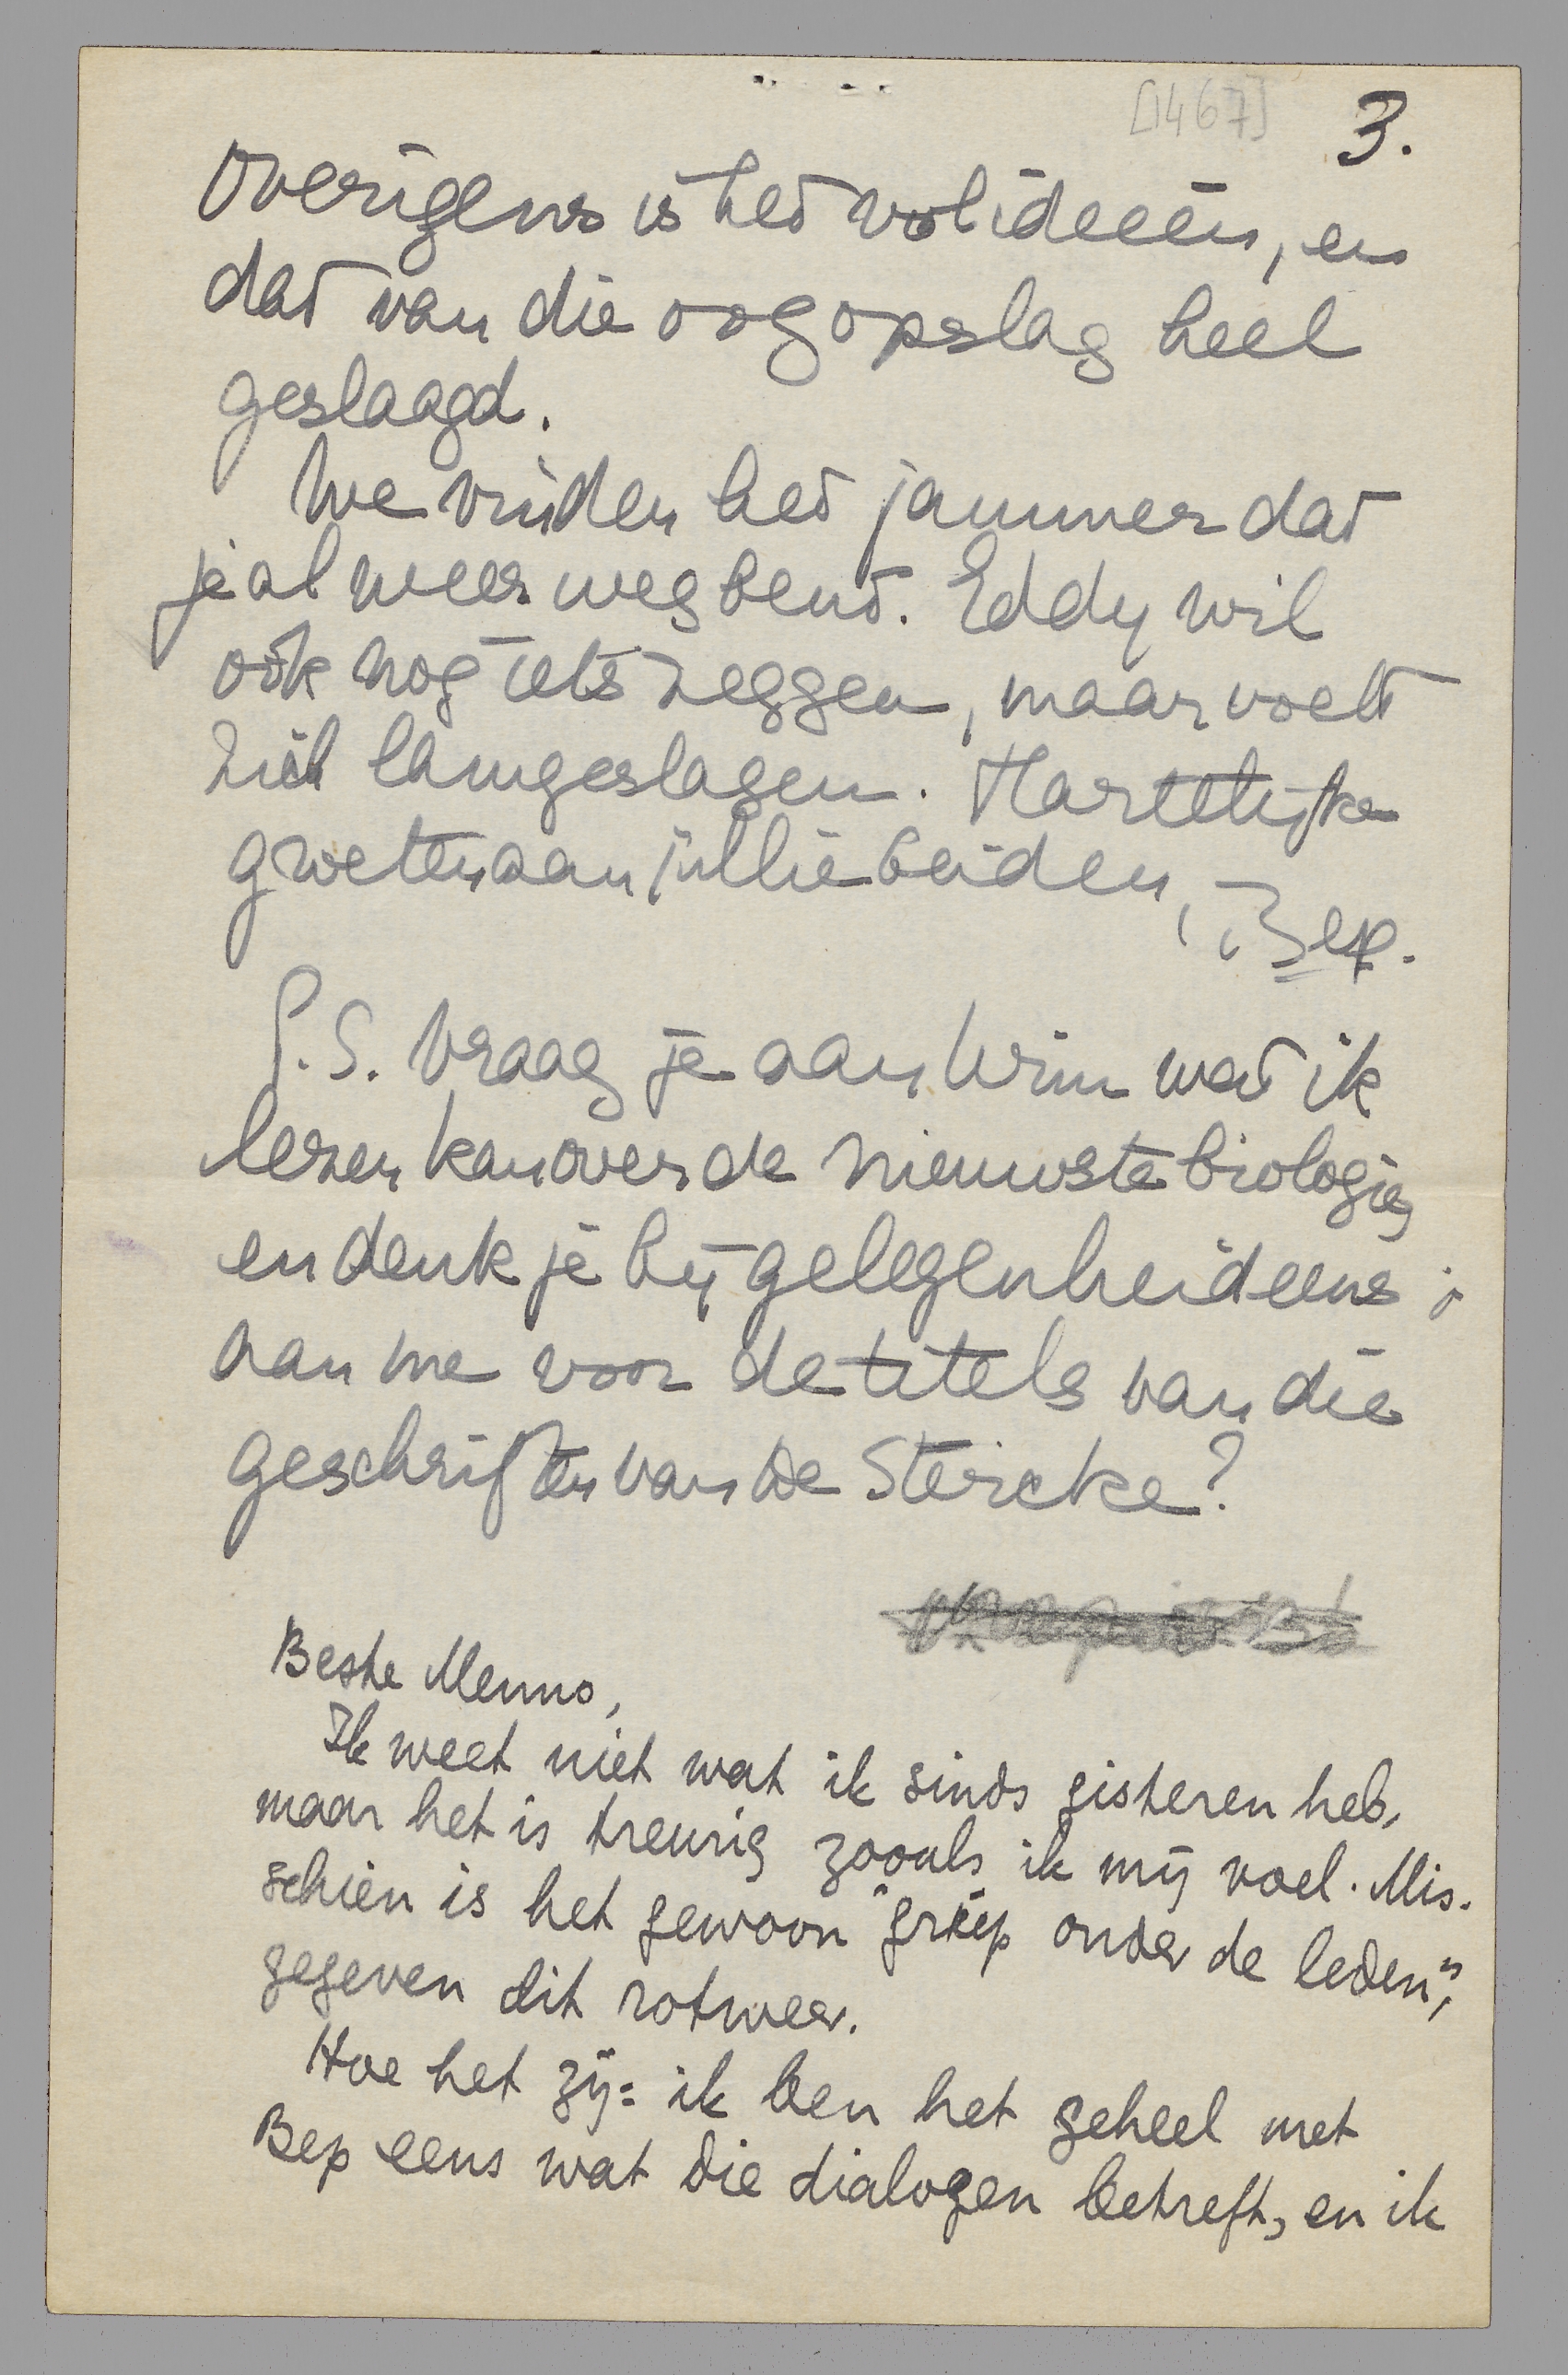 [1467] 3.
Overigens is het vol ideeën, en
dat van die oogopslag heel
geslaagd.
We vinden het jammer dat
je al weer weg bent. Eddy wil
ook nog iets zeggen, maar voelt
zich lamgeslagen. Hartelijke
groeten aan jullie beiden,
Bep.
P.S. Vraag je aan Wim wat ik
lezen kan over de nieuwste biologie,
en denk je bij gelegenheid eens
aan me voor de titels van die
geschriften van de Stercke?
Beste Menno,
Ik weet niet wat ik sinds gisteren heb,
maar het is treurig zooals ik mij voel. Mis-
schien is het gewoon "griep onder de leden",
gegeven dit rotweer.
Hoe het zij: ik ben het geheel met
Bep eens wat die dialogen betreft, en ik